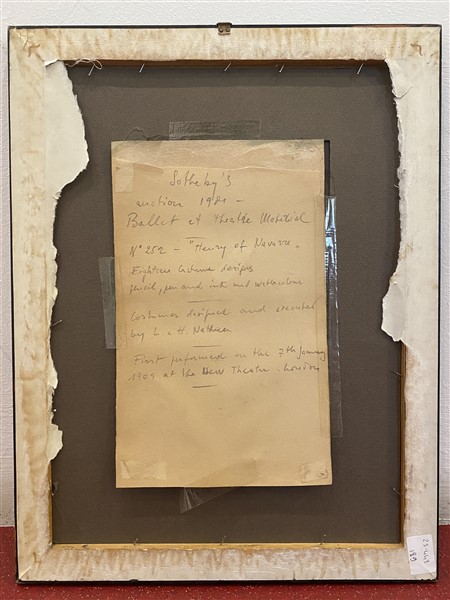 Sotheby's
auction 1981 -
Ballet et Theatre Material
N° 252 - "Henry of Navarre"
Eighteen Costume designs
pencil, pen and ink and watercolour
Costumes designed and executed
by L. & H. Nathan
First performed on the 7th January
1909 at the New Theatre. London
180